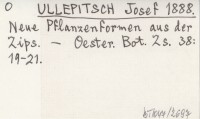 O ULLEPITSCH Josef 1888.
Neue Pflanzenformen aus der
Zips. — Oester. Bot. Zs. 38:
19-21.